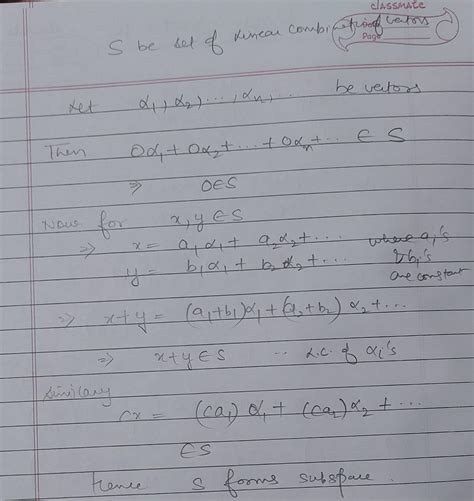 classmate
Page
S be set of Linear combination of vectors
Let α₁, α₂, ..., αₙ, ... be vectors
Then 0α₁ + 0α₂ + ... + 0αₙ + ... ∈ S
⇒ 0∈S
Now for x, y ∈ S
⇒ x = a₁α₁ + a₂α₂ + ... where aᵢ's
y = b₁α₁ + b₂α₂ + ... & bᵢ's
are constant
⇒ x+y = (a₁+b₁)α₁ + (a₂+b₂)α₂ + ...
⇒ x+y ∈ S ∵ L.C. of αᵢ's
Similary
Cx = (ca₁) α₁ + (ca₂) α₂ + ...
∈ S
Hence S forms subspace.